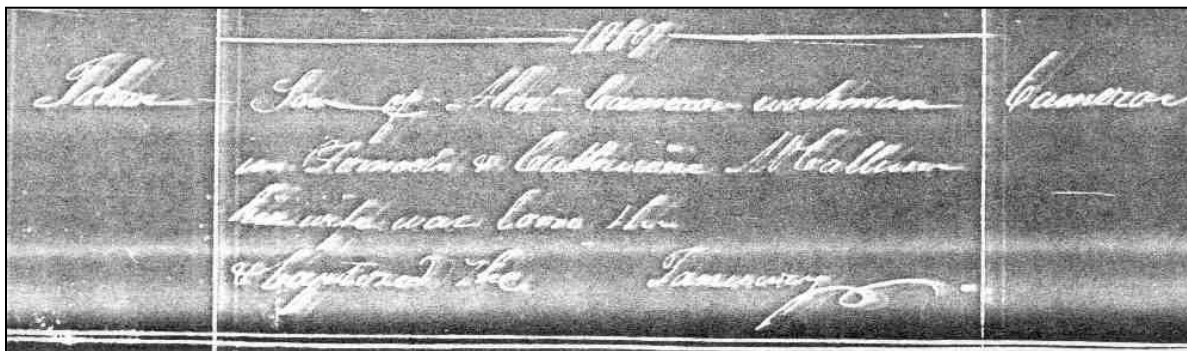 John Son of Alexr Cameron workman Cameron
in & Catharine McCallum
his wife was born the
& baptized the January